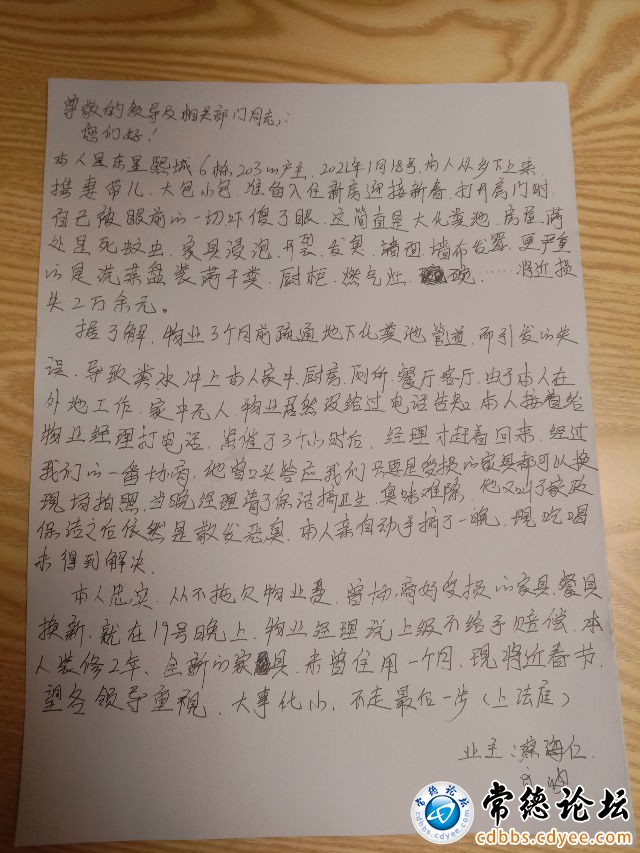 尊敬的领导及相关部门同志:
您们好!
本人是东星熙城6栋203的户主,2021年1月18号,本人从乡下上来,
携妻带儿、大包小包、准备入住新房迎接新春、打开房门时,
自己被眼前的一切吓傻了眼、这简直是大化粪池、房屋满
处是死蚊虫、家具浸泡、开裂、发臭、墙面墙布发霉、更严重
的是洗菜盘装满干粪、厨柜、燃气灶、碗……将近损
失2万余元。
据了解、物业3个月前疏通地下化粪池管道、而引发的失
误、导致粪水冲上本人家中、厨房、厕所、餐厅、客厅、由于本人在
外地工作、家中无人、物业居然没给过电话告知、本人接着给
物业经理打电话、催了3个小时后、经理才赶着回来、经过
我们的一番协商、他曾口头答应我们只要是受损的家具都可以换
现场拍照、当晚经理请了保洁搞卫生、臭味难除、他又叫了家政
保洁之位依然是散发恶臭、本人亲自动手搞了一晚、现吃喝
未得到解决、
本人忠实、从不拖欠物业费、曾协商好受损的家具、餐具
换新、就在19号晚上、物业经理说上级不给予赔偿、本
人装修2年、全新的家具、未曾住用一个月、现将近春节、
望各领导重视、大事化小、不走最后一步(上法庭)
业主:蔡海仁
常德论坛
cdbbs.cdyee.com